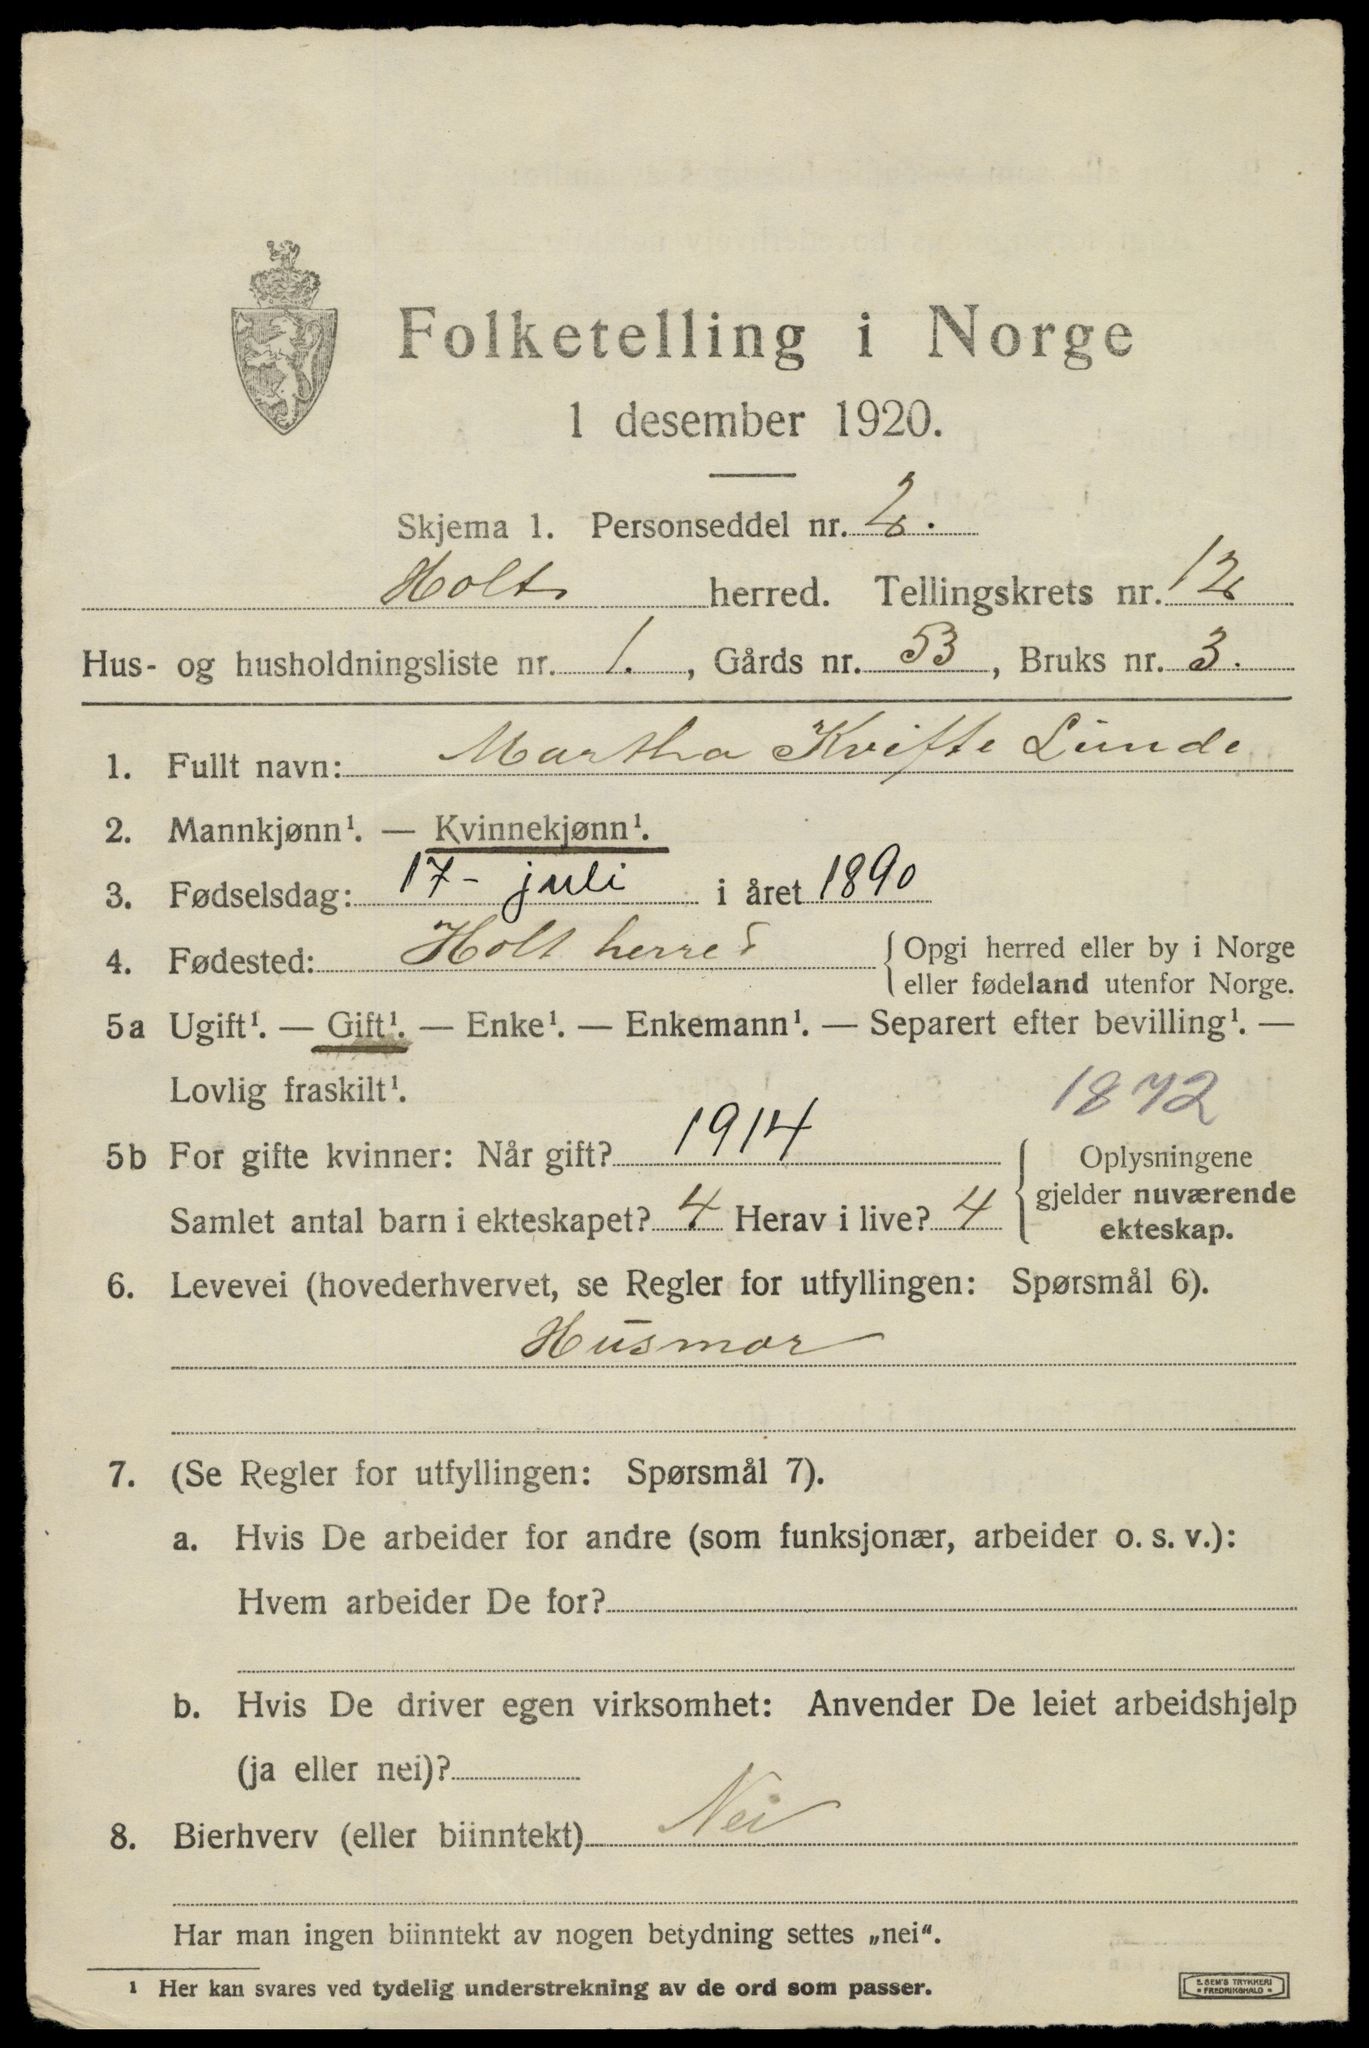 Folketelling i Norge
1 desember 1920.
Skjema 1. Personseddel nr. 2.
Holt herred. Tellingskrets nr. 12
Hus- og husholdningsliste nr. 1., Gårds nr. 53, Bruks nr. 3.
1. Fullt navn: Martha Kvifte Lunde
2. Mannkjønn¹. — Kvinnekjønn¹.
3. Fødselsdag: 17 - juli i året 1890
4. Fødested: Holt herred { Opgi herred eller by i Norge
eller fødeland utenfor Norge.
5a Ugift¹. — Gift¹. — Enke¹. — Enkemann¹. — Separert efter bevilling¹. —
Lovlig fraskilt¹. 1872
5b For gifte kvinner: Når gift? 1914 { Oplysningene
Samlet antal barn i ekteskapet? 4 Herav i live? 4 gjelder nuværende
ekteskap.
6. Levevei (hovederhvervet, se Regler for utfyllingen: Spørsmål 6).
Husmor
7. (Se Regler for utfyllingen: Spørsmål 7).
a. Hvis De arbeider for andre (som funksjonær, arbeider o. s. v.):
Hvem arbeider De for?
b. Hvis De driver egen virksomhet: Anvender De leiet arbeidshjelp
(ja eller nei)?
8. Bierhverv (eller biinntekt) Nei
Har man ingen biinntekt av nogen betydning settes „nei“.
¹ Her kan svares ved tydelig understrekning av de ord som passer.
E. SEM'S TRYKKERI
FREDRIKSHALD